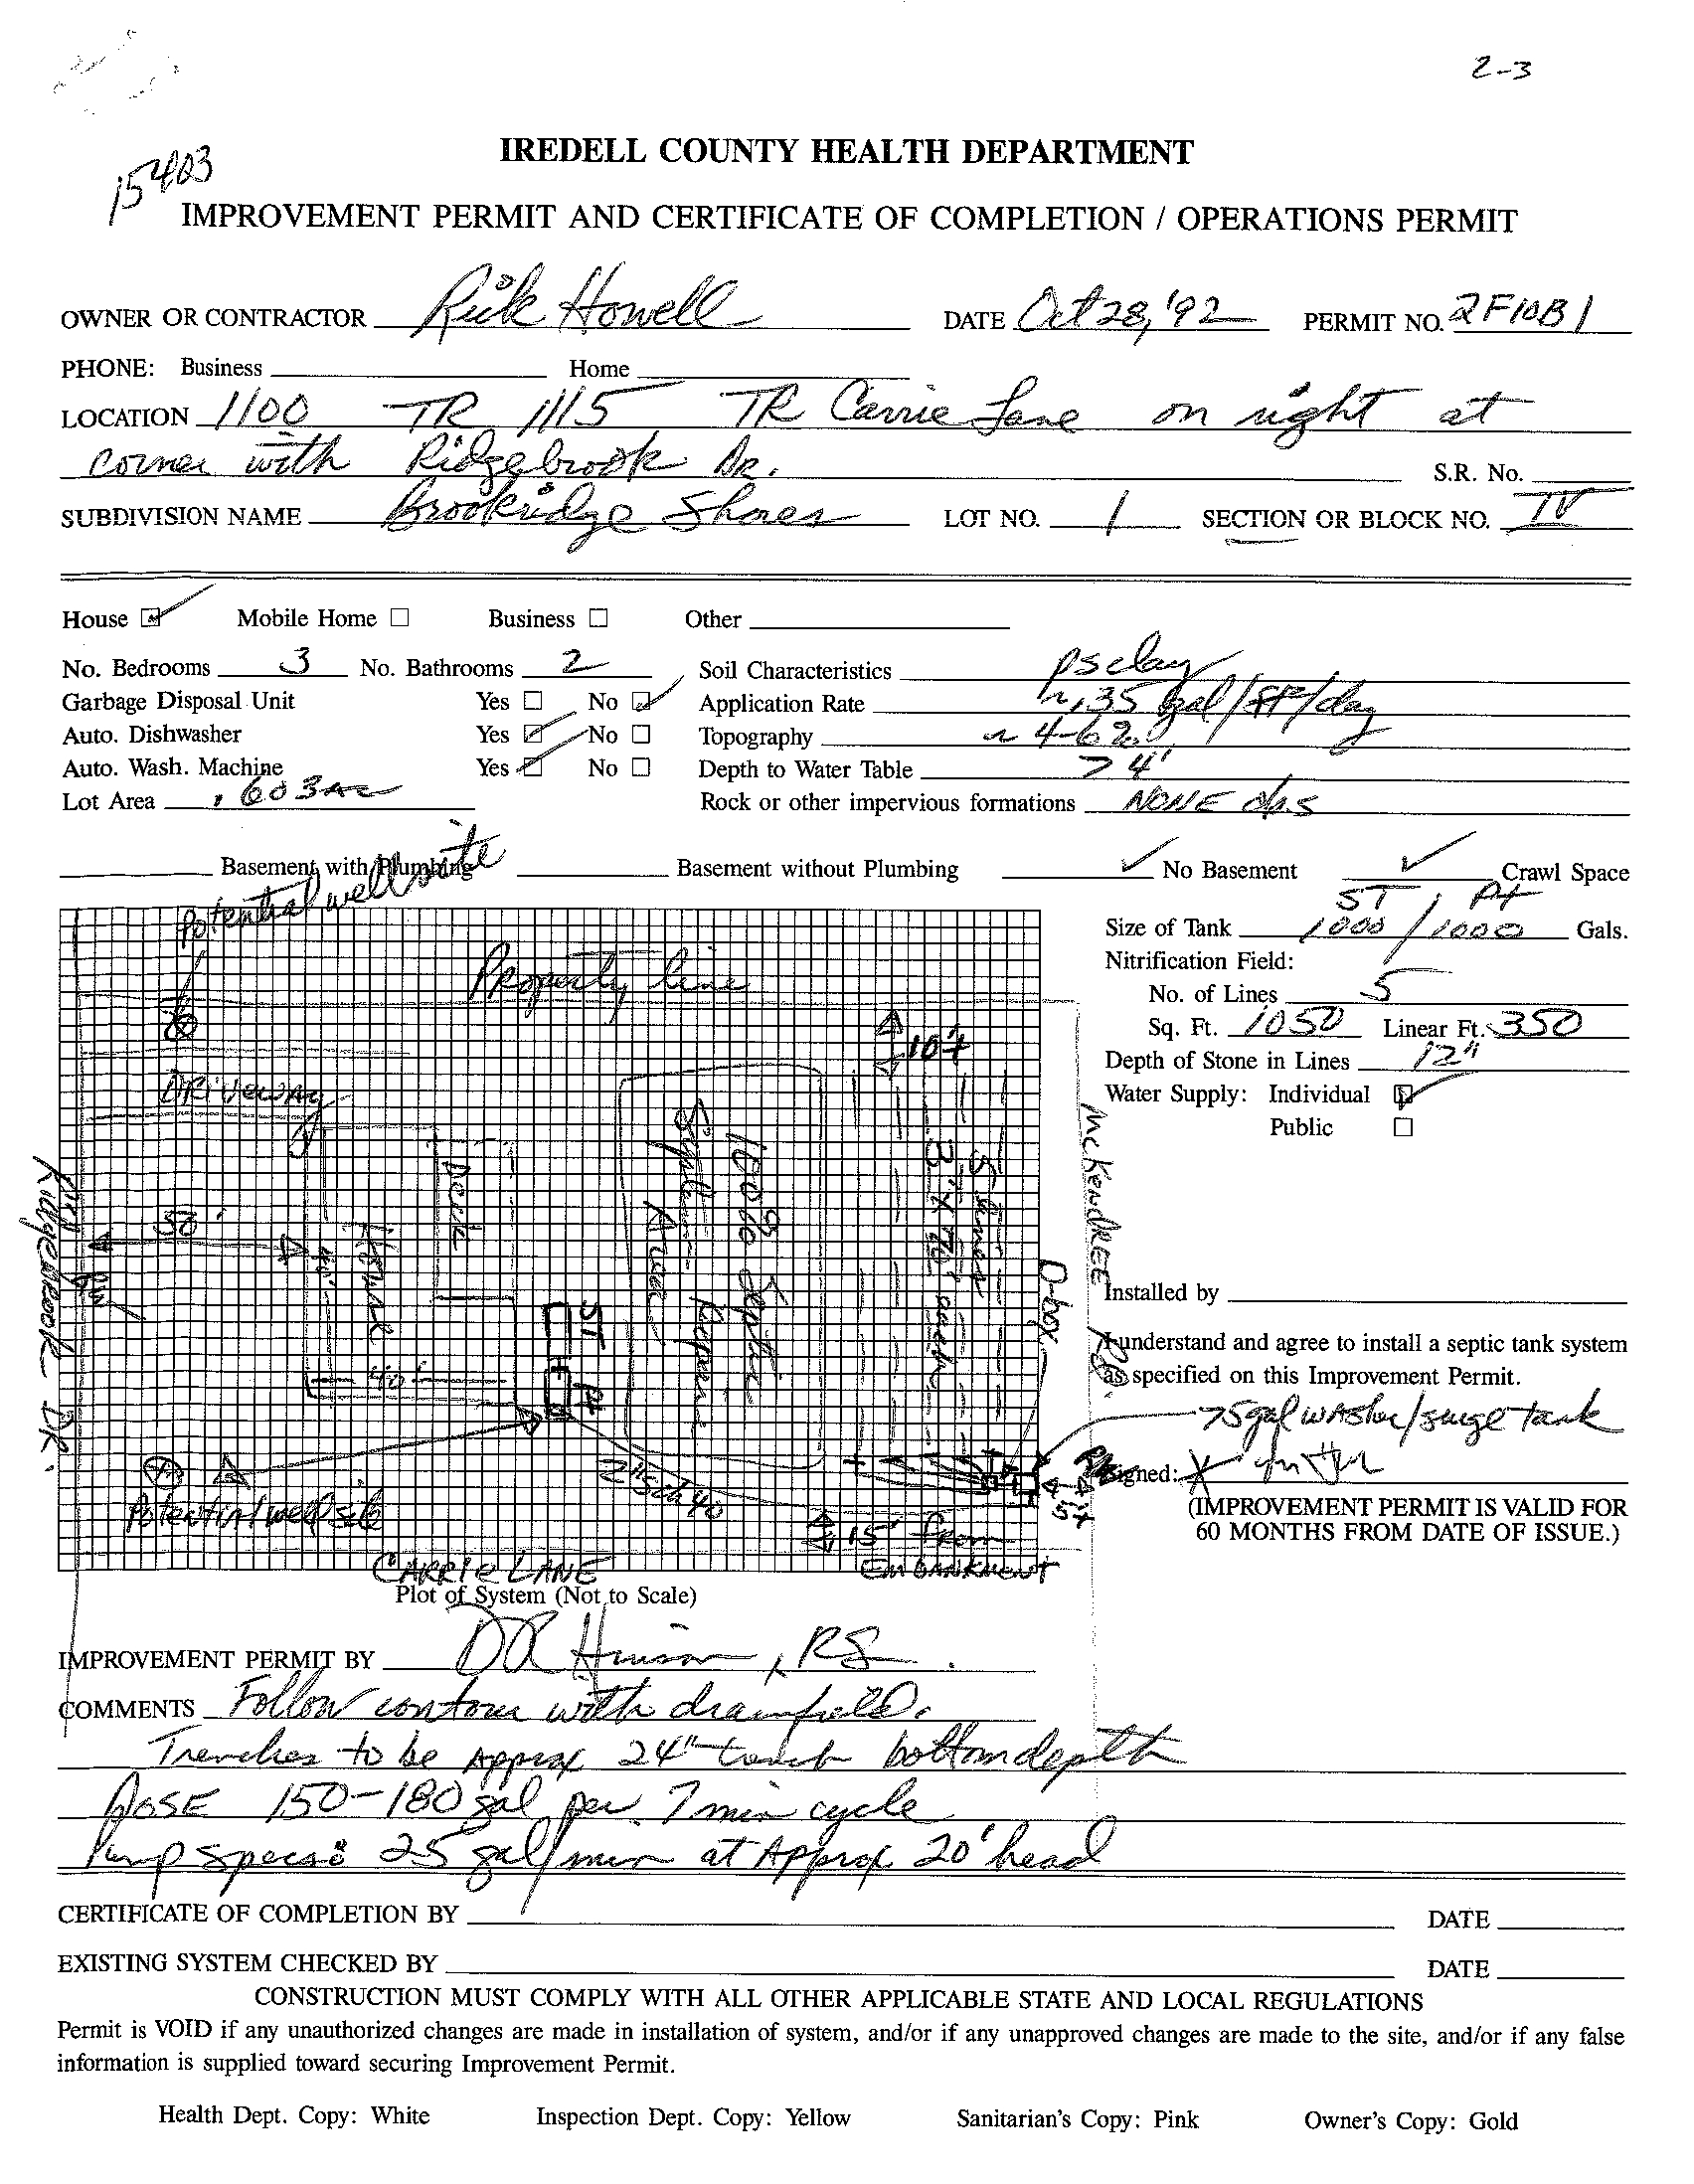 2-3
15403
IREDELL COUNTY HEALTH DEPARTMENT
IMPROVEMENT PERMIT AND CERTIFICATE OF COMPLETION / OPERATIONS PERMIT
OWNER OR CONTRACTOR Rick Howell DATE Oct 28, '92 PERMIT NO. 2F10B1
PHONE: Business Home
LOCATION 1100 TR 1115 TR Carrie Lane on right at
corner with Ridgebrook Dr. S.R. No.
SUBDIVISION NAME Brookridge Shores LOT NO. 1 SECTION OR BLOCK NO. IV
House Mobile Home Business Other
No. Bedrooms 3 No. Bathrooms 2 Soil Characteristics ps clay
Garbage Disposal Unit Yes No Application Rate ~.35 gal/ft²/day
Auto. Dishwasher Yes No Topography ~ 4-6%
Auto. Wash. Machine Yes No Depth to Water Table > 4'
Lot Area .603 Ac Rock or other impervious formations NONE obs
Basement with Plumbing Basement without Plumbing No Basement Crawl Space
Potential well site
ST / PT
Size of Tank 1000 / 1000 Gals.
Nitrification Field:
Property line
No. of Lines 5
Sq. Ft. 1050 Linear Ft. 350
10'+
Depth of Stone in Lines 12"
Water Supply: Individual
Public
DRIVEWAY
Deck
House
40'
40'
50'
Ridgebrook DR.
100% Septic Repair
Septic Area
5 lines
3' x 70' each
McKendree Rd
D-box
ST
PT
2" sch 40
Potential well site
15' from
EMBANKMENT
CARRIE LANE
Installed by
I understand and agree to install a septic tank system
as specified on this Improvement Permit.
75 gal washer/surge tank
Signed: X
(IMPROVEMENT PERMIT IS VALID FOR
60 MONTHS FROM DATE OF ISSUE.)
Plot of System (Not to Scale)
IMPROVEMENT PERMIT BY DR Hinson, RS
COMMENTS Follow contour with drainfield.
Trenches to be Approx 24" trench bottom depth
DOSE 150-180 gal per 7 min cycle
Pump specs: 25 gal/min at Approx 20' head
CERTIFICATE OF COMPLETION BY DATE
EXISTING SYSTEM CHECKED BY DATE
CONSTRUCTION MUST COMPLY WITH ALL OTHER APPLICABLE STATE AND LOCAL REGULATIONS
Permit is VOID if any unauthorized changes are made in installation of system, and/or if any unapproved changes are made to the site, and/or if any false
information is supplied toward securing Improvement Permit.
Health Dept. Copy: White Inspection Dept. Copy: Yellow Sanitarian's Copy: Pink Owner's Copy: Gold